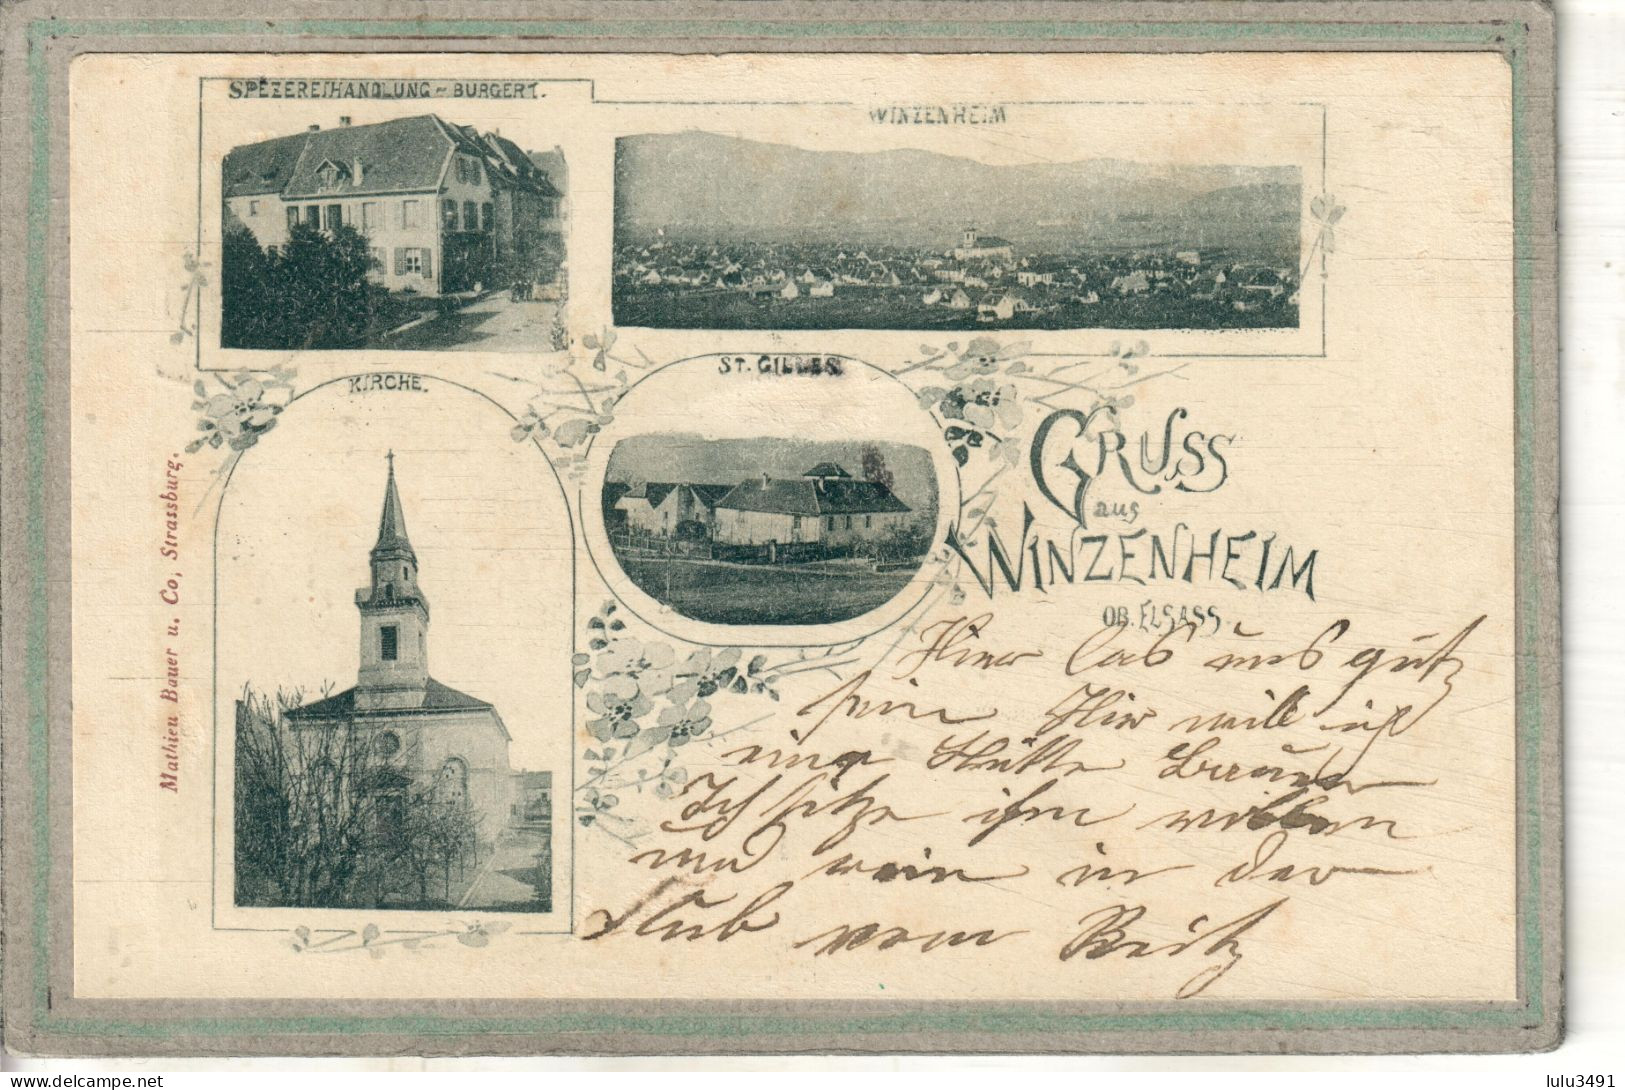 SPEZEREIHANDLUNG - BURGERT.
WINZENHEIM
KIRCHE.
ST. GILLES
GRUSS
aus
WINZENHEIM
OB. ELSASS
Mathieu Bauer u. Co, Strassburg.
Hier las uns gut
sein Hier will ich
eine Hütte Bauen
Ich sitze ihm
und wein in der
Stub vom
delcampe.net
lulu3491